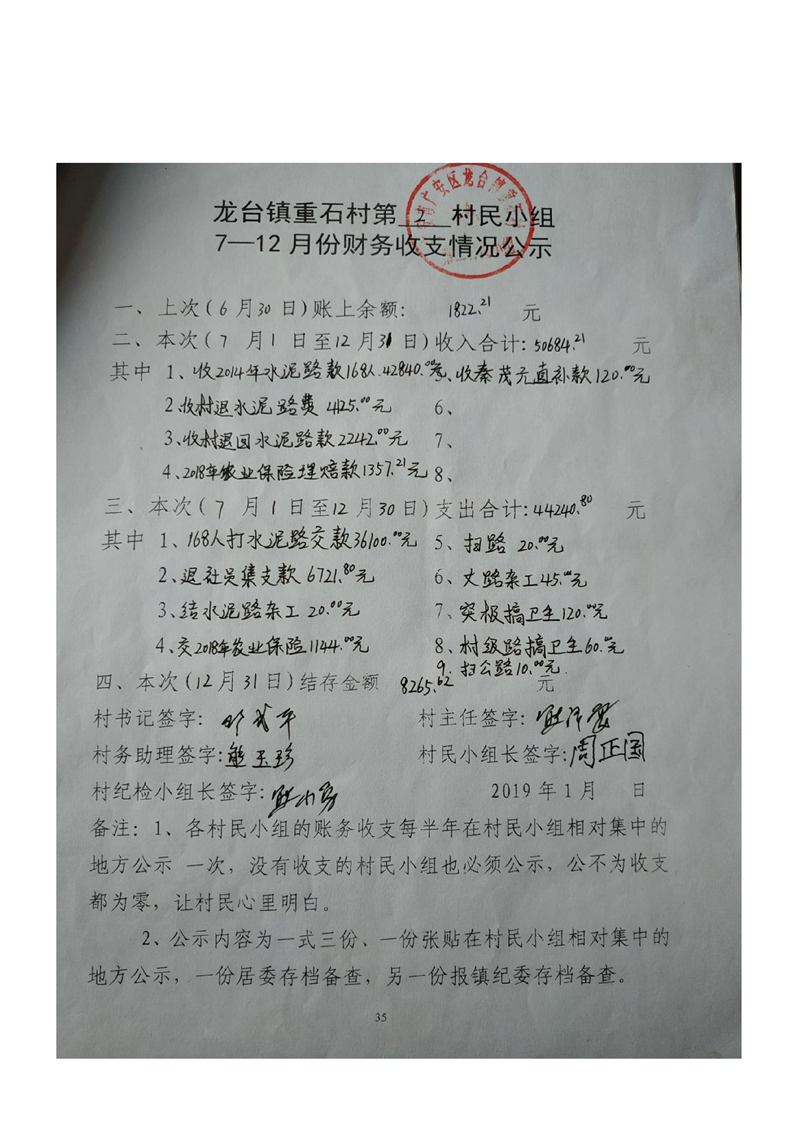 龙台镇重石村第 2 村民小组
7—12月份财务收支情况公示
广安区龙台镇
一、上次(6月30日)账上余额: 1822.21 元
二、本次(7月1日至12月31日)收入合计:50684.21 元
其中 1、收2014年水泥路款168人.42840.00元 5、收秦茂元直补款120.00元
2收村退水泥路费4125.00元 6、
3、收村退回水泥路款2242.00元 7、
4、2018年农业保险理赔款1357.21元 8、
三、本次(7月1日至12月30日)支出合计:44240.80 元
其中 1、168人打水泥路交款36100.00元 5、扫路 20.00元
2、退社员集支款 6721.80元 6、丈路杂工45.00元
3、结水泥路杂工 20.00元 7、突极搞卫生120.00元
4、交2018年农业保险1144.00元 8、村级路搞卫生60.00元
9.扫公路10.00元.
四、本次(12月31日)结存金额 8265.62 元
村书记签字: 村主任签字:
村务助理签字:熊玉珍 村民小组长签字:周正国
村纪检小组长签字: 2019年1月 日
备注:1、各村民小组的账务收支每半年在村民小组相对集中的
地方公示 一次,没有收支的村民小组也必须公示,公不为收支
都为零,让村民心里明白。
2、公示内容为一式三份、一份张贴在村民小组相对集中的
地方公示,一份居委存档备查,另一份报镇纪委存档备查。
35